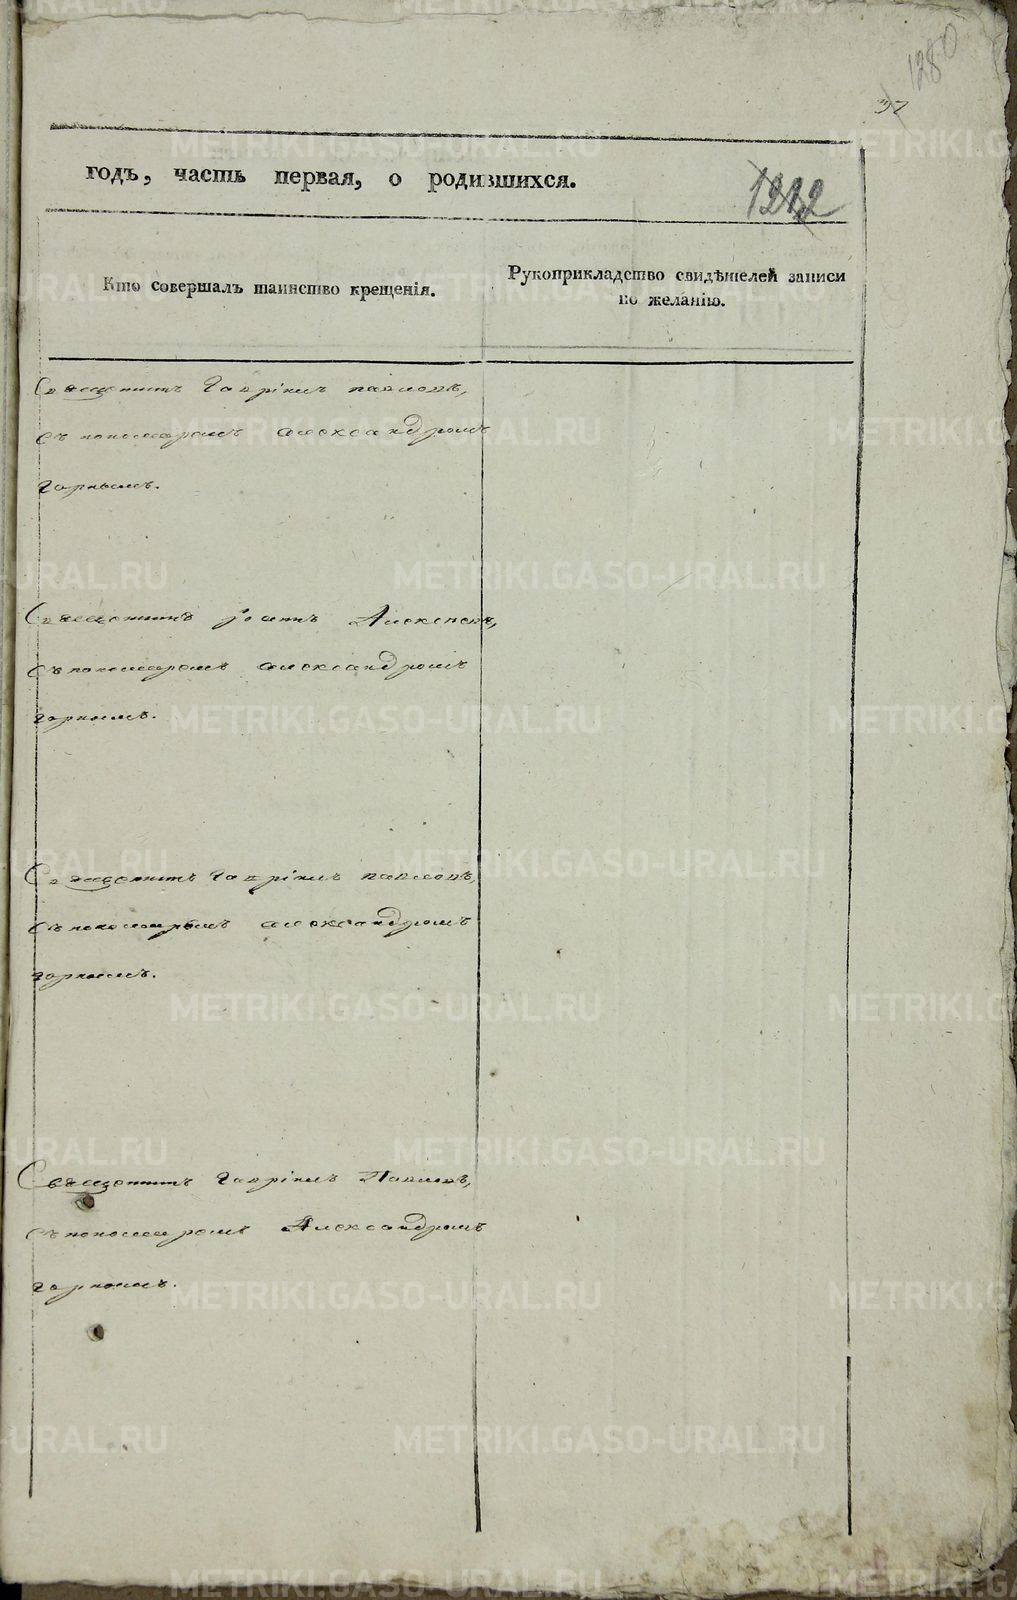 1280
37
годъ, часть первая, о родившихся.
1212
Кто совершалъ таинство крещенія.
Рукоприкладство свидѣтелей записи
по желанію.
Священникъ Гавріилъ павловъ,
съ пономаремъ александромъ
горнымъ.
Священникъ Іоаннъ Алексѣевъ,
съ пономаремъ александромъ
горнымъ.
Священникъ Гавріилъ павловъ,
съ пономаремъ александромъ
горнымъ.
Священникъ Гавріилъ Павловъ,
съ пономаремъ Александромъ
горнымъ.
METRIKI.GASO-URAL.RU